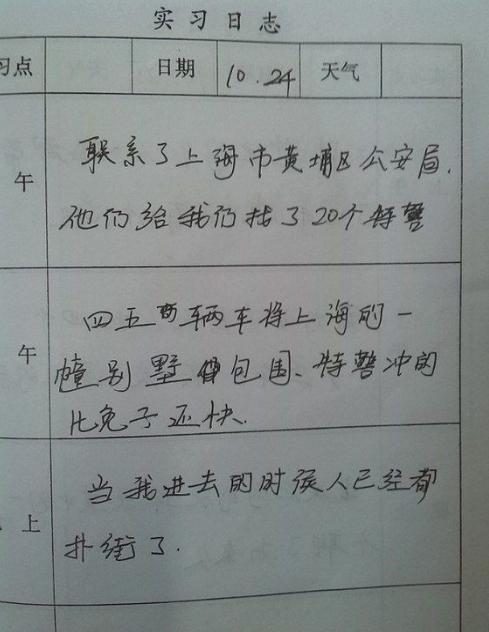 实习日志
习点 日期 10.24 天气
午 联系了上海市黄埔区公安局.
他们给我们找了20个特警
午 四五辆车将上海的一
幢别墅包围、特警冲的
比兔子还快.
上 当我进去的时候人已经都
扑街了.